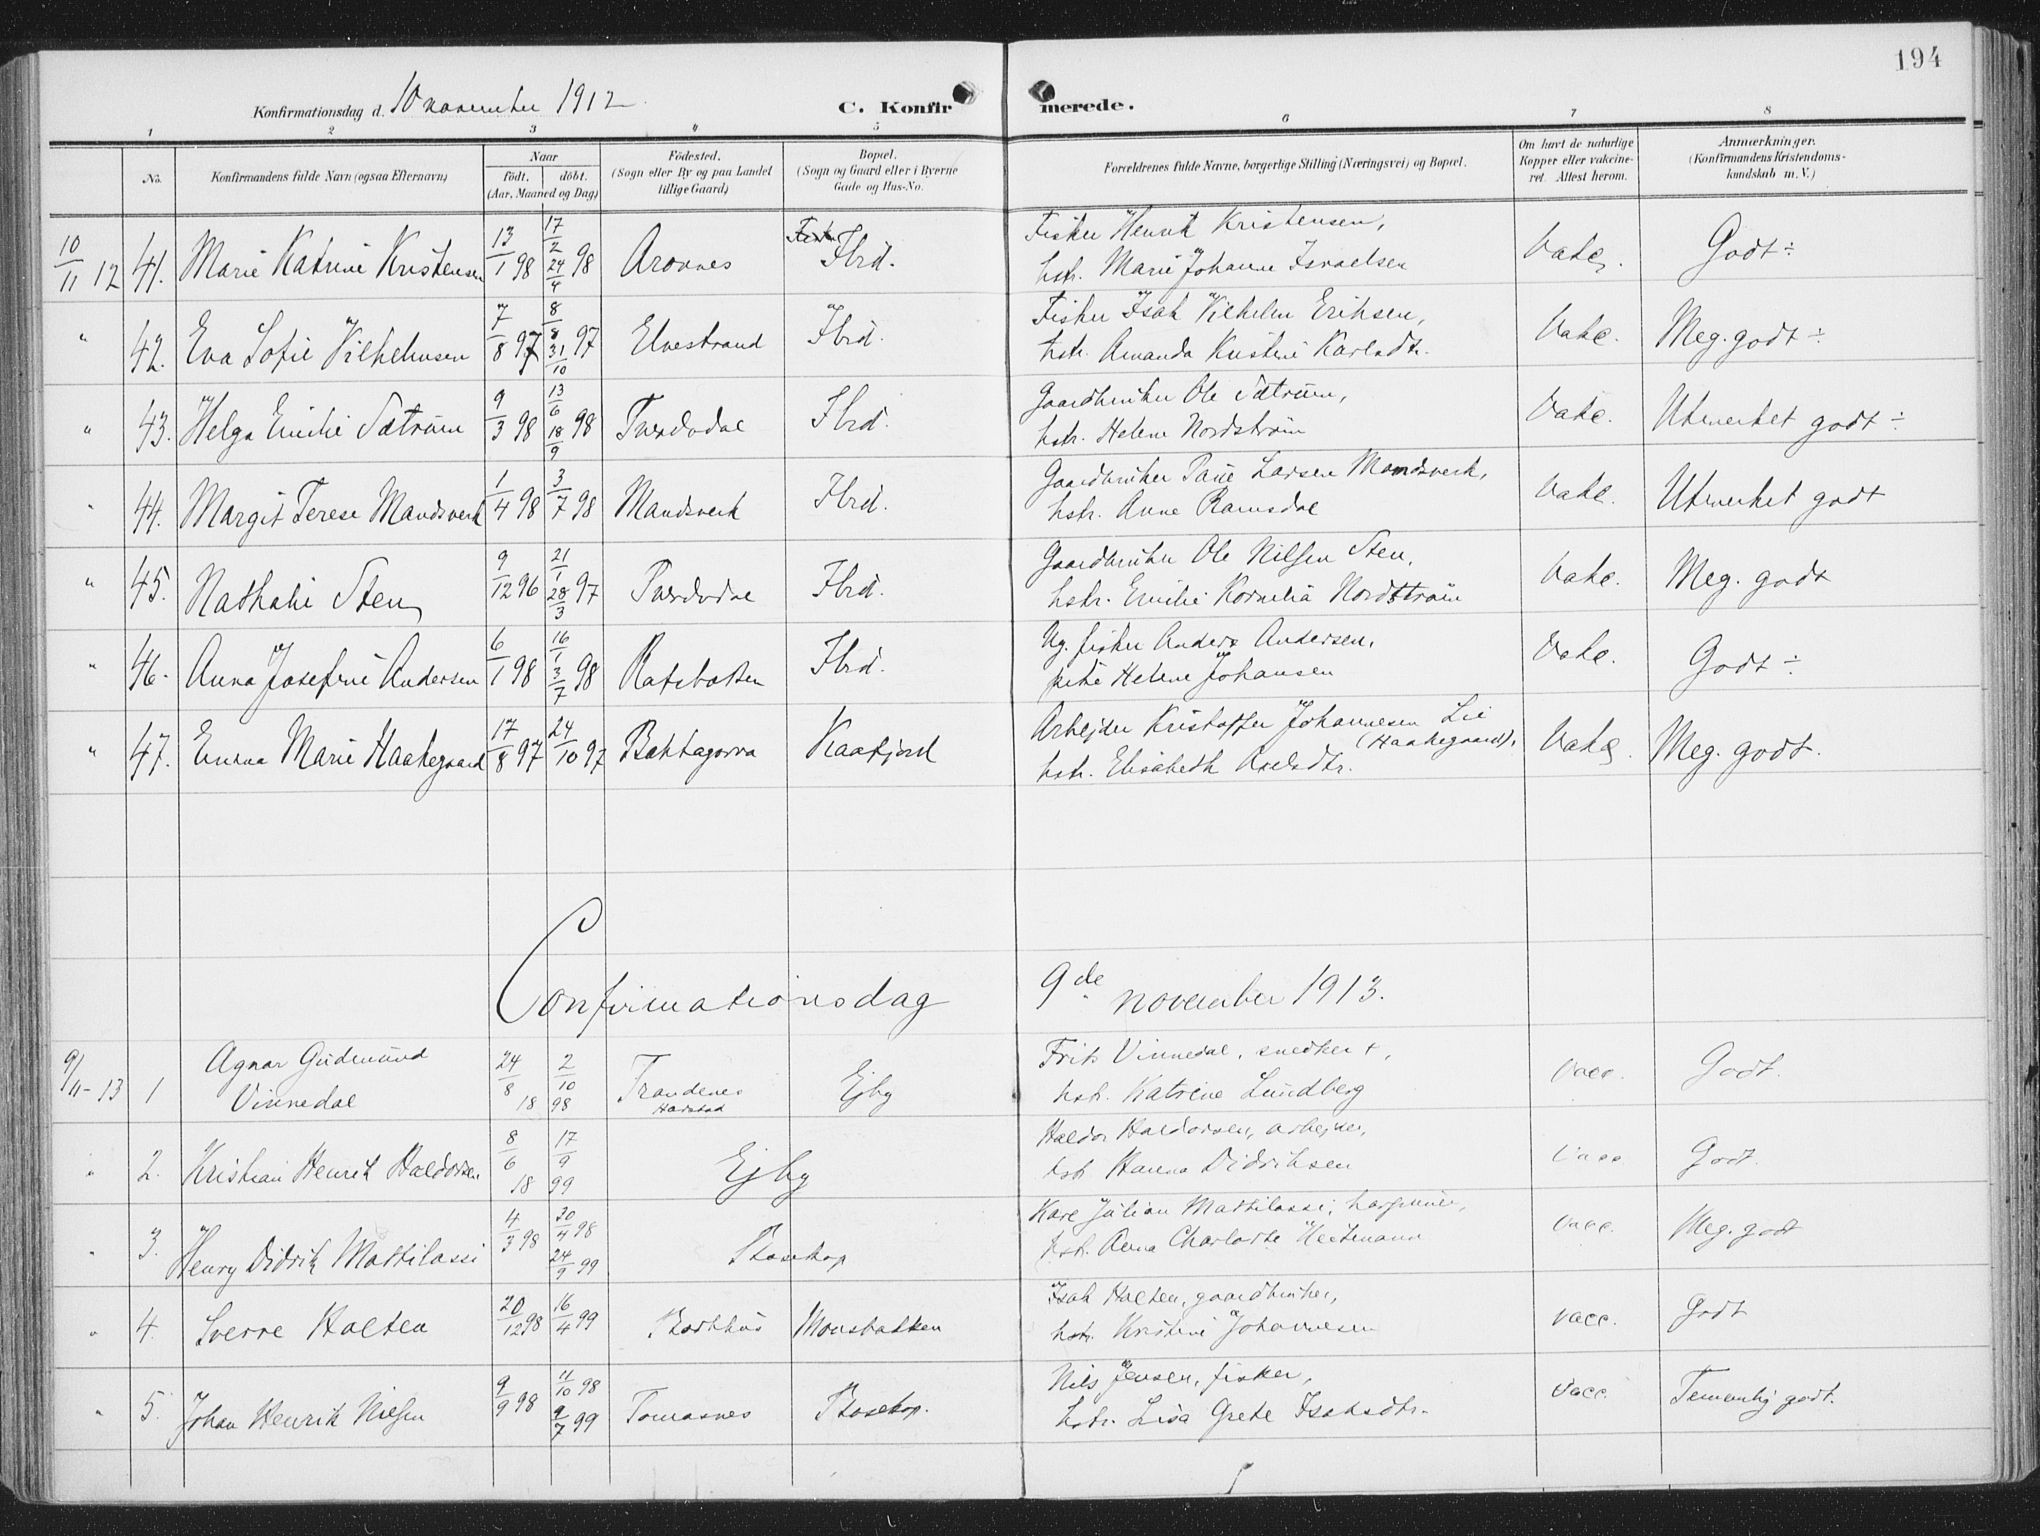 194
Konfirmationsdag d. 10 november 1912
C. Konfirmerede.
1 2 3 4 5 6 7 8
No.
Konfirmandens fulde Navn (ogsaa Efternavn)
Naar
födt. döbt.
(Aar, Maaned og Dag)
Födested.
(Sogn eller By og paa Landet
tillige Gaard)
Bopæl.
(Sogn og Gaard eller i Byerne
Gade og Hus-No.
Forældrenes fulde Navne, borgerlige Stilling (Næringsvei) og Bopæl.
Om havt de naturlige
Kopper eller vakcine-
ret. Attest herom.
Anmærkninger.
(Konfirmandens Kristendoms-
kundskab m. V.)
10/11 12 41. Marie Katrine Kristensen 13/1 98 17/2 24/4 98 Aronnes Ibid. Fisker Henrik Kristensen, Vakc. Godt ÷
hstr. Marie Johanne Israelsen
" 42. Eva Sofie Vilhelmsen 7/8 97 8/8 31/10 97 Elvestrand Ibid. Fisker Isak Vilhelm Eriksen, Vakc. Meg. godt ÷
hstr. Amanda Kristine Karlsdtr.
" 43. Helga Emilie Sætrum 9/3 98 13/6 18/9 98 Tverdvdal Ibid. Gaardbruker Ole Sætrum, Vakc. Utmerket godt ÷
hstr. Helene Nordström
" 44. Margit Terese Mandsverk 1/4 98 3/7 98 Mandsverk Ibid. Gaardbruker Paul Larsen Mandsverk, Vakc. Utmerket godt
hstr. Anne Ramsdal
" 45. Nathalie Sten 9/12 96 21/1 28/3 97 Tverdvdal Ibid. Gaardbruker Ole Nilsen Sten, Vakc. Meg. godt
hstr. Emilie Kornelia Nordström
" 46. Anna Josefine Andersen 6/1 98 16/1 3/7 98 Rafsbotten Ibid. Ug. fisker Anders Andersen, Vakc. Godt ÷
pike Helene Johansen
" 47. Emma Marie Haakegaard 17/8 97 24/10 97 Bakkagorva Kaafjord Arbejder Kristoffer Johannesen Lie Vakc. Meg. godt.
(Haakegaard),
hstr. Elisabeth Axelsdtr.
Confirmationsdag 9de november 1913.
9/11-13 1 Agnar Gudmund 24/8 18 2/10 98 Trondenes Ejby Frits Vinnedal, snedker +, Vacc. Godt.
Vinnedal Harstad hstr. Katrine Lundberg
" 2. Kristian Henrik Haldorsen 8/6 18 17/9 99 Ejby Haldor Haldorsen, arbejder, Vacc Godt.
hstr Hanna Didriksen
" 3. Henry Didrik Mattilassi 4/3 98 30/4 98 24/9 99 Bosekop Karl Julian Mattilassi, harpuner, Vacc. Meg. godt
hstr. Anna Charlotte Heitmann
" 4. Sverre Holten 20/12 98 16/4 99 Borkhus Monsbakken Isak Holten, gaardbruker, Vacc. Godt
hstr. Kristine Johannesen
" 5. Johan Henrik Nilsen 9/9 98 11/10 98 9/7 99 Tomasnes Bosekop. Nils Jensen, fisker, Vacc. Temmelig godt.
hstr. Lisa Grete Isaksdtr.